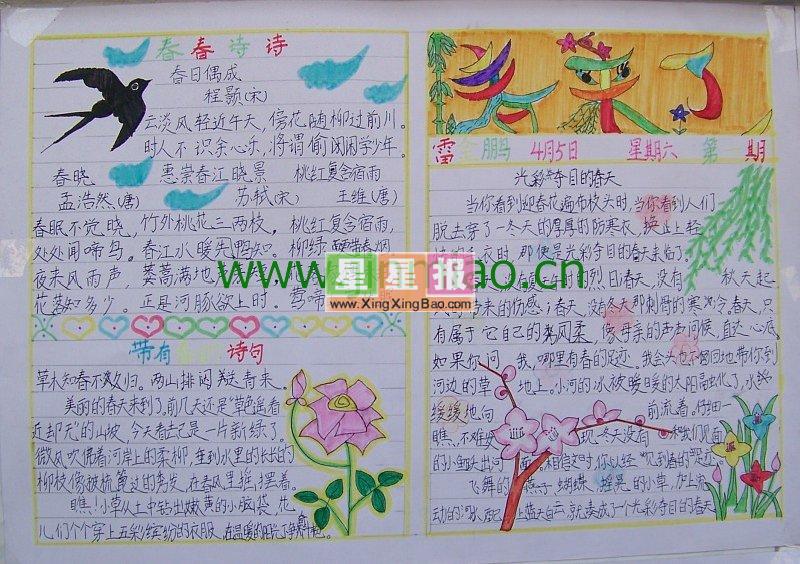 春春诗诗
春日偶成
程颢(宋)
云淡风轻近午天，傍花随柳过前川。
时人不识余心乐，将谓偷闲学少年。
春晓 惠崇春江晓景 桃红复含宿雨
孟浩然(唐) 苏轼(宋) 王维(唐)
春眠不觉晓， 竹外桃花三两枝。 桃红复含宿雨，
处处闻啼鸟。 春江水暖先鸭知。 柳绿
夜来风雨声 蒌蒿满地
花落知多少。 正是河豚欲上时。 莺啼
带有 诗句
草木知春不久归。两山排闼送青来。
美丽的春天来到了。前几天还是“草色遥看
近却无”的山坡，今天看去已是一片新绿了。
微风吹拂着河岸上的柔柳，垂到水里的长长的
柳枝像被梳 过的秀发，在春风里摇摆着。
瞧！小草从土中钻出嫩黄的小脑袋，花
儿们个个穿上五彩缤纷的衣服，在温暖的阳光下
春来了
雷 鹏 4月5日 星期六 第一期
光彩夺目的春天
当你看到迎春花遍布枝头时，当你看到人们
脱去穿了一冬天的厚厚的防寒衣，换上轻
衣时，那便是光彩夺目的春天来临了。
烈日；春天，没有 秋天起
带来的伤感；春天，没有冬天那刺骨的寒冷。春天，只
有属于它自己的 风柔，像母亲的声声问候，直达心底。
如果你问我，哪里有春的足迹。我会头也不回地带你到
河边的草地上。小河的冰被暖暖的太阳融化了，水
缓缓地向 前流着。仔细一
瞧，不难发现，冬天没有和我们见面
的小鱼 出河面。相信这时，你已经“见到春的足迹”
飞舞的 燕 蝴蝶， 的小草，加上流
动的 配上蓝天白云，就凑成了一个光彩夺目的春天
www. bao.cn
星星报
www.XingXingBao.com